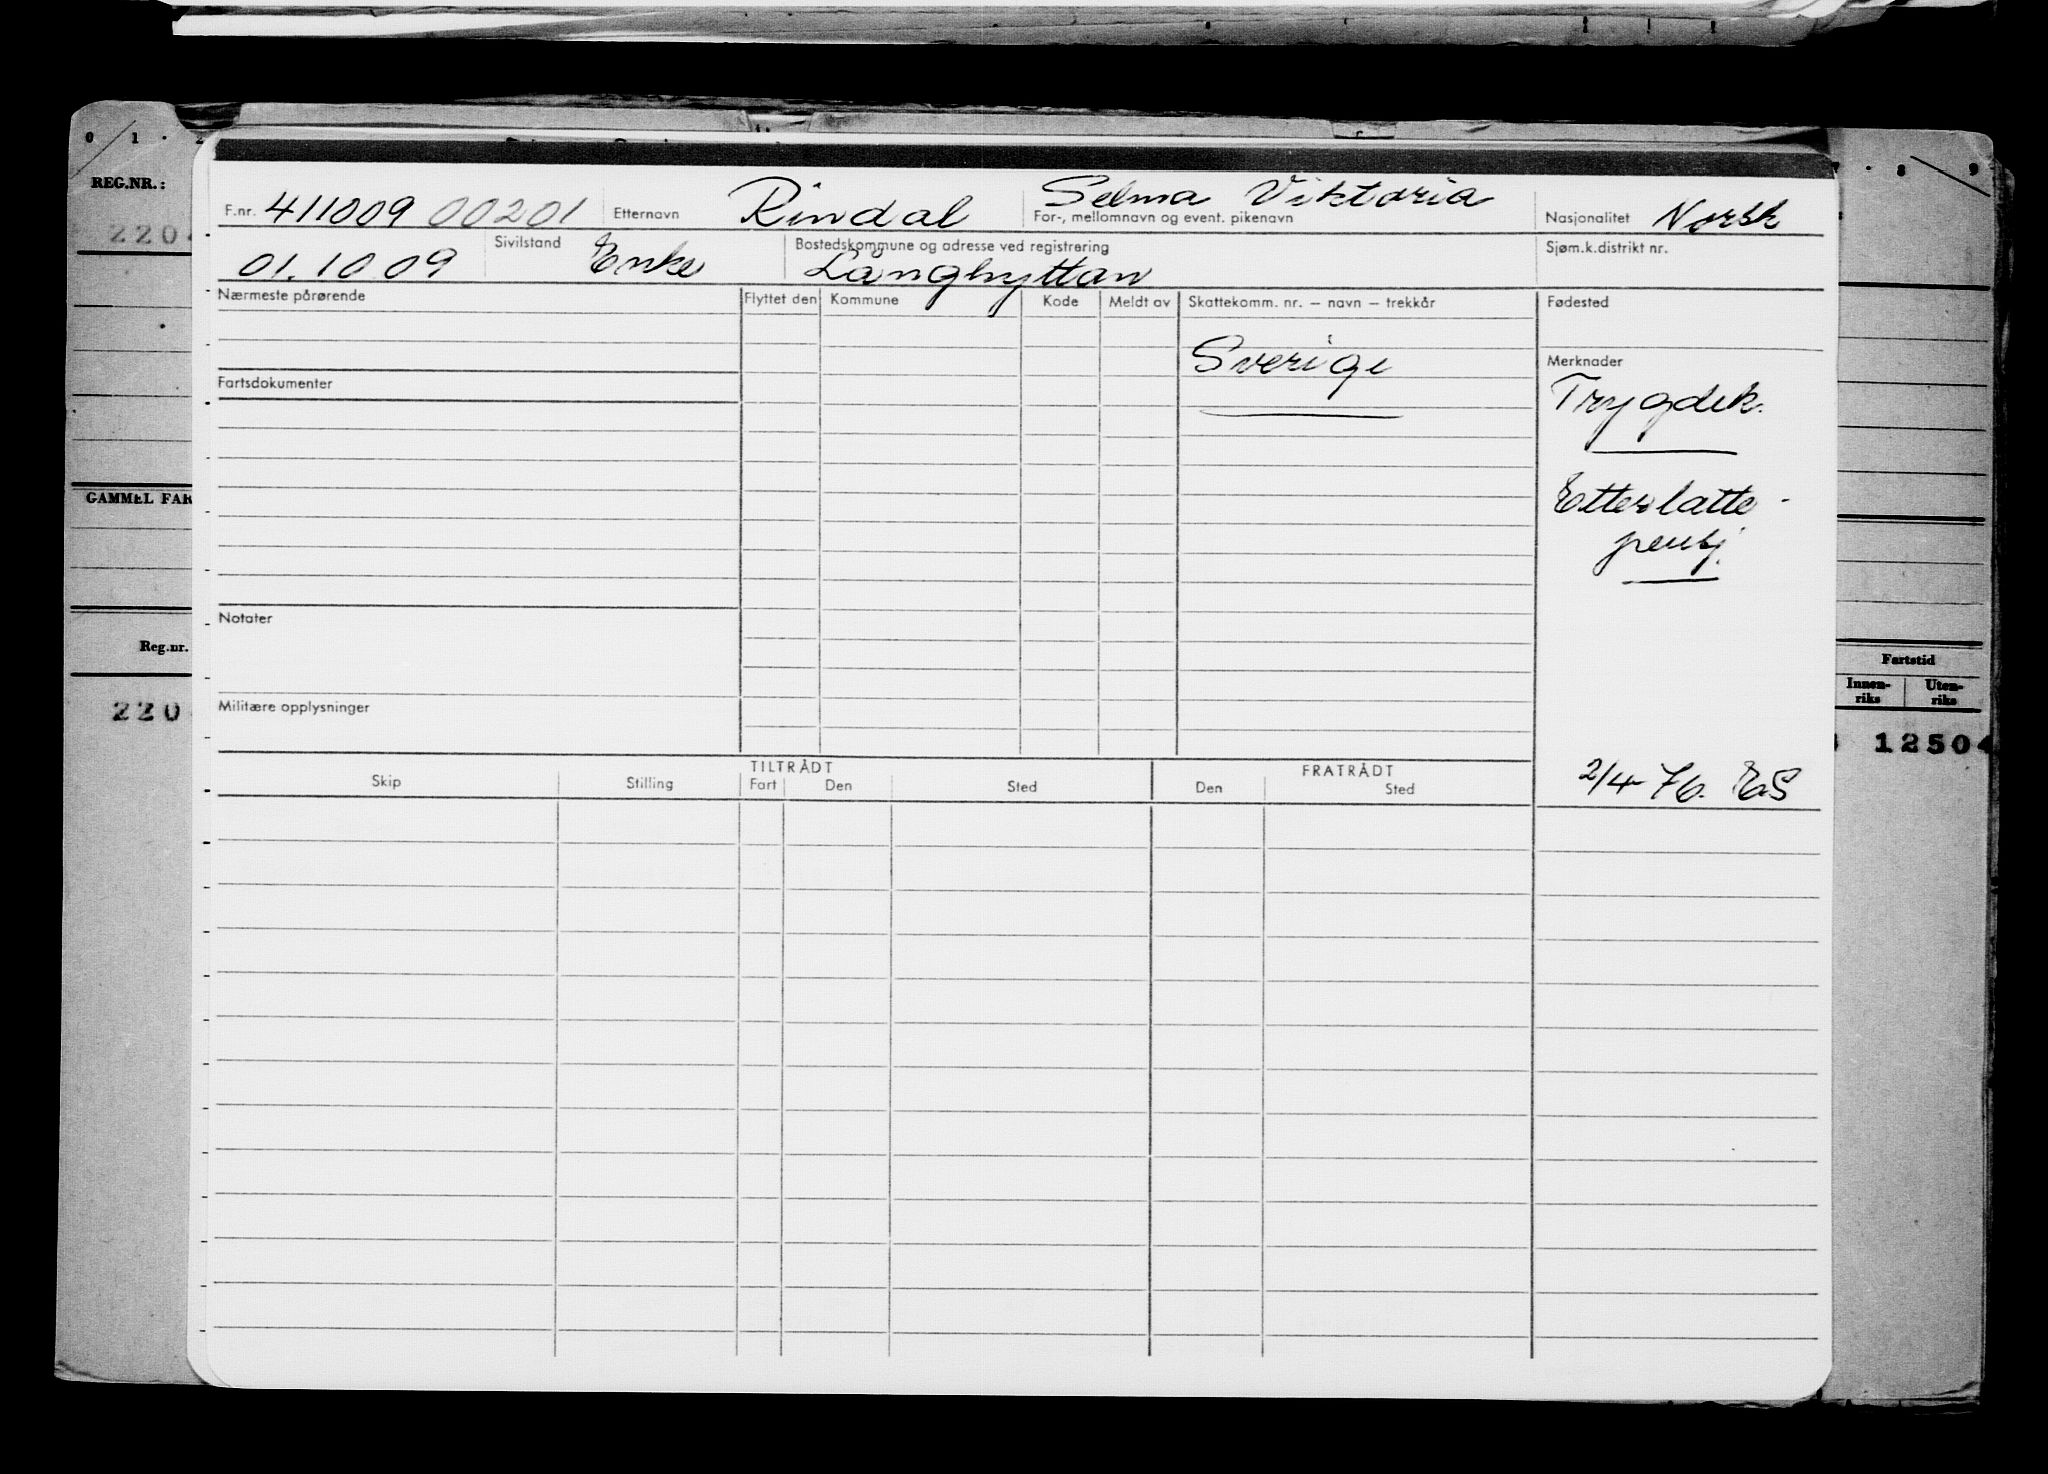 0 1 2
8 9
REG.NR.:
F.nr. 411009 00201 Etternavn Rindal Selma Viktoria For-, mellomnavn og event. pikenavn Nasjonalitet Norsk
220
01.10 09 Sivilstand Enke Bostedskommune og adresse ved registrering Långhyttan Sjøm.k.distrikt nr.
Nærmeste pårørende Flyttet den Kommune Kode Meldt av Skattekomm. nr. – navn – trekkår Fødested
Sverige
Merknader
Fartsdokumenter
Trygdek.
GAMMEL FAR
Etterlatte-
pensj.
Notater
Reg.nr.
Fartstid
Innen-
riks
Uten-
riks
Militære opplysninger
220
12504
TILTRÅDT FRATRÅDT
Skip Stilling Fart Den Sted Den Sted
2/4-76. ES